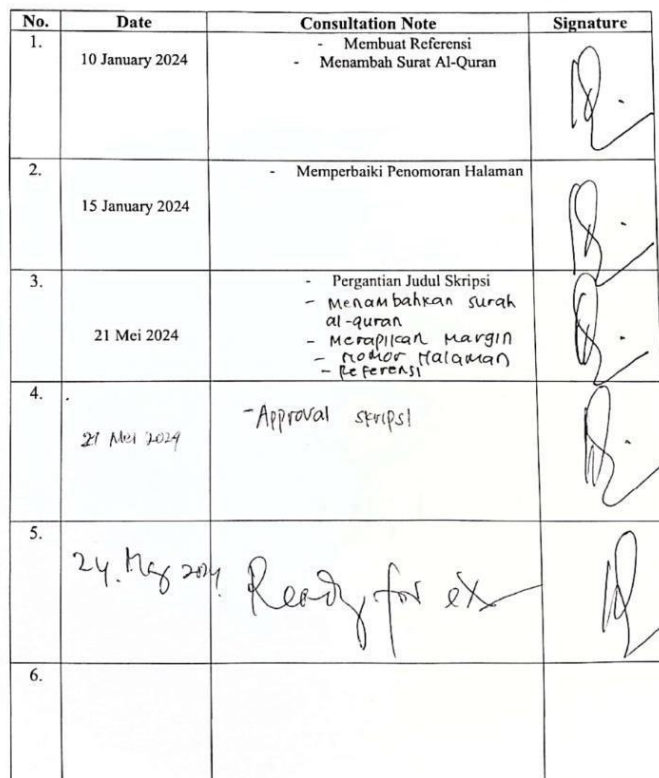 No. Date Consultation Note Signature
1. 10 January 2024 - Membuat Referensi
- Menambah Surat Al-Quran
2. 15 January 2024 - Memperbaiki Penomoran Halaman
3. 21 Mei 2024 - Pergantian Judul Skripsi
- Menambahkan surah
al-quran
- Merapikan Margin
- nomor Halaman
- Referensi
4. 21 Mei 2024 - Approval skripsi
5. 24 May 2024 Ready for ex
6.